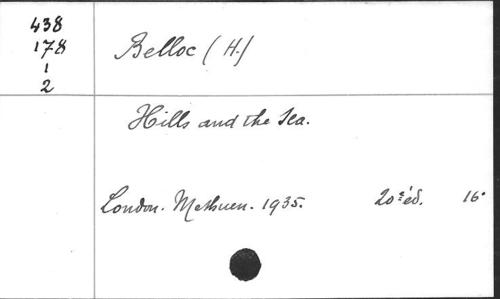 438
178
1
2
Belloc (H.)
Hills and the Sea.
London. Methuen. 1935. 20e éd. 16°